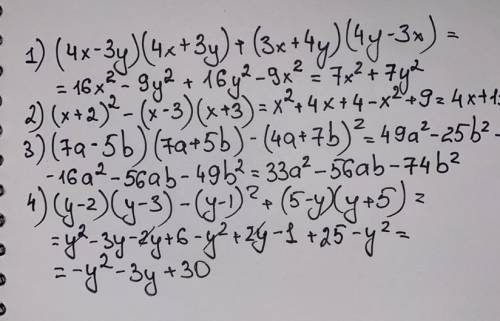 1) (4x-3y)(4x+3y)+(3x+4y)(4y-3x)=
=16x²-9y²+16y²-9x²=7x²+7y²
2) (x+2)²-(x-3)(x+3)=x²+4x+4-x²+9=4x+1
3) (7a-5b)(7a+5b)-(4a+7b)²=49a²-25b²-
-16a²-56ab-49b²=33a²-56ab-74b²
4) (y-2)(y-3)-(y-1)²+(5-y)(y+5)=
=y²-3y-2y+6-y²+2y-1+25-y²=
=-y²-3y+30